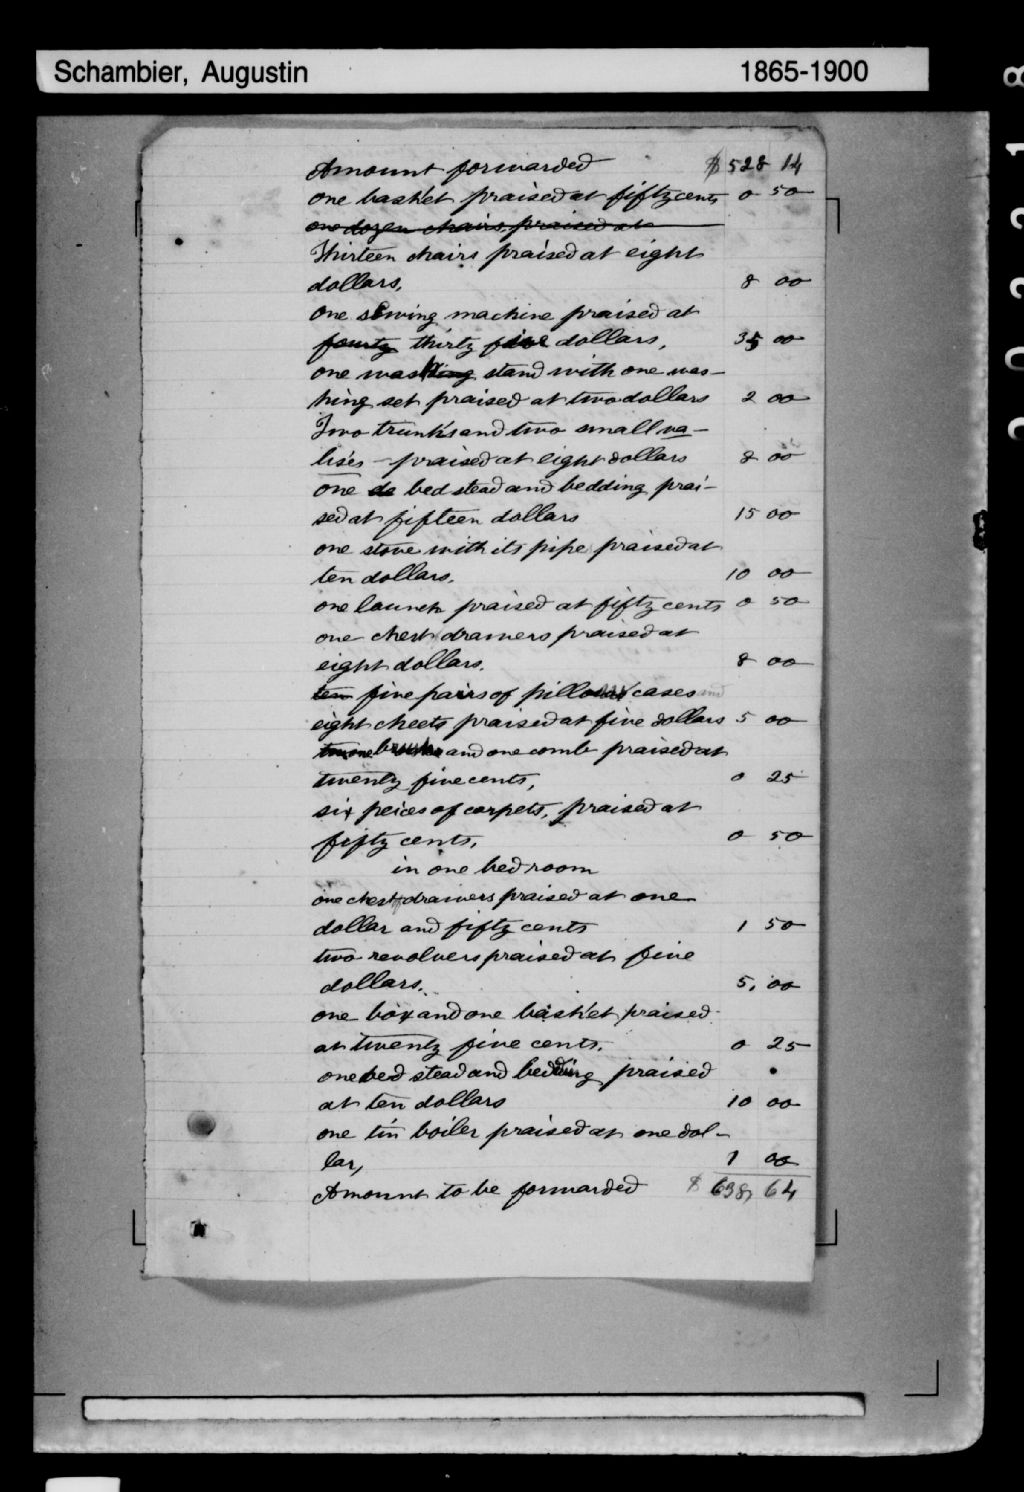 Schambier, Augustin 1865-1900
Amount forwarded $ 528 14
one basket praised at fifty cents 0 50
one dozen chairs, praised at
Thirteen chairs praised at eight
dollars, 8 00
one sewing machine praised at
fourty thirty five dollars, 35 00
one washing stand with one was-
hing set praised at two dollars 2 00
Two trunks and two small va-
lises - praised at eight dollars 8 00
one do bed stead and bedding prai-
sed at fifteen dollars 15 00
one stove with its pipe praised at
ten dollars. 10 00
one launch praised at fifty cents 0 50
one chest drawers praised at
eight dollars. 8 00
ten five pairs of pillows cases and
eight cheets praised at five dollars 5 00
one and one comb praised at
twenty five cents, 0 25
six peices of carpets, praised at
fifty cents, 0 50
in one bed room
one chest of drawers praised at one
dollar and fifty cents 1 50
two revolvers praised at five
dollars. 5, 00
one box and one basket praised
at twenty five cents. 0 25
one bed stead and bedding praised
at ten dollars 10 00
one tin boiler praised at one dol-
lar, 1 00
Amount to be forwarded $ 638, 64